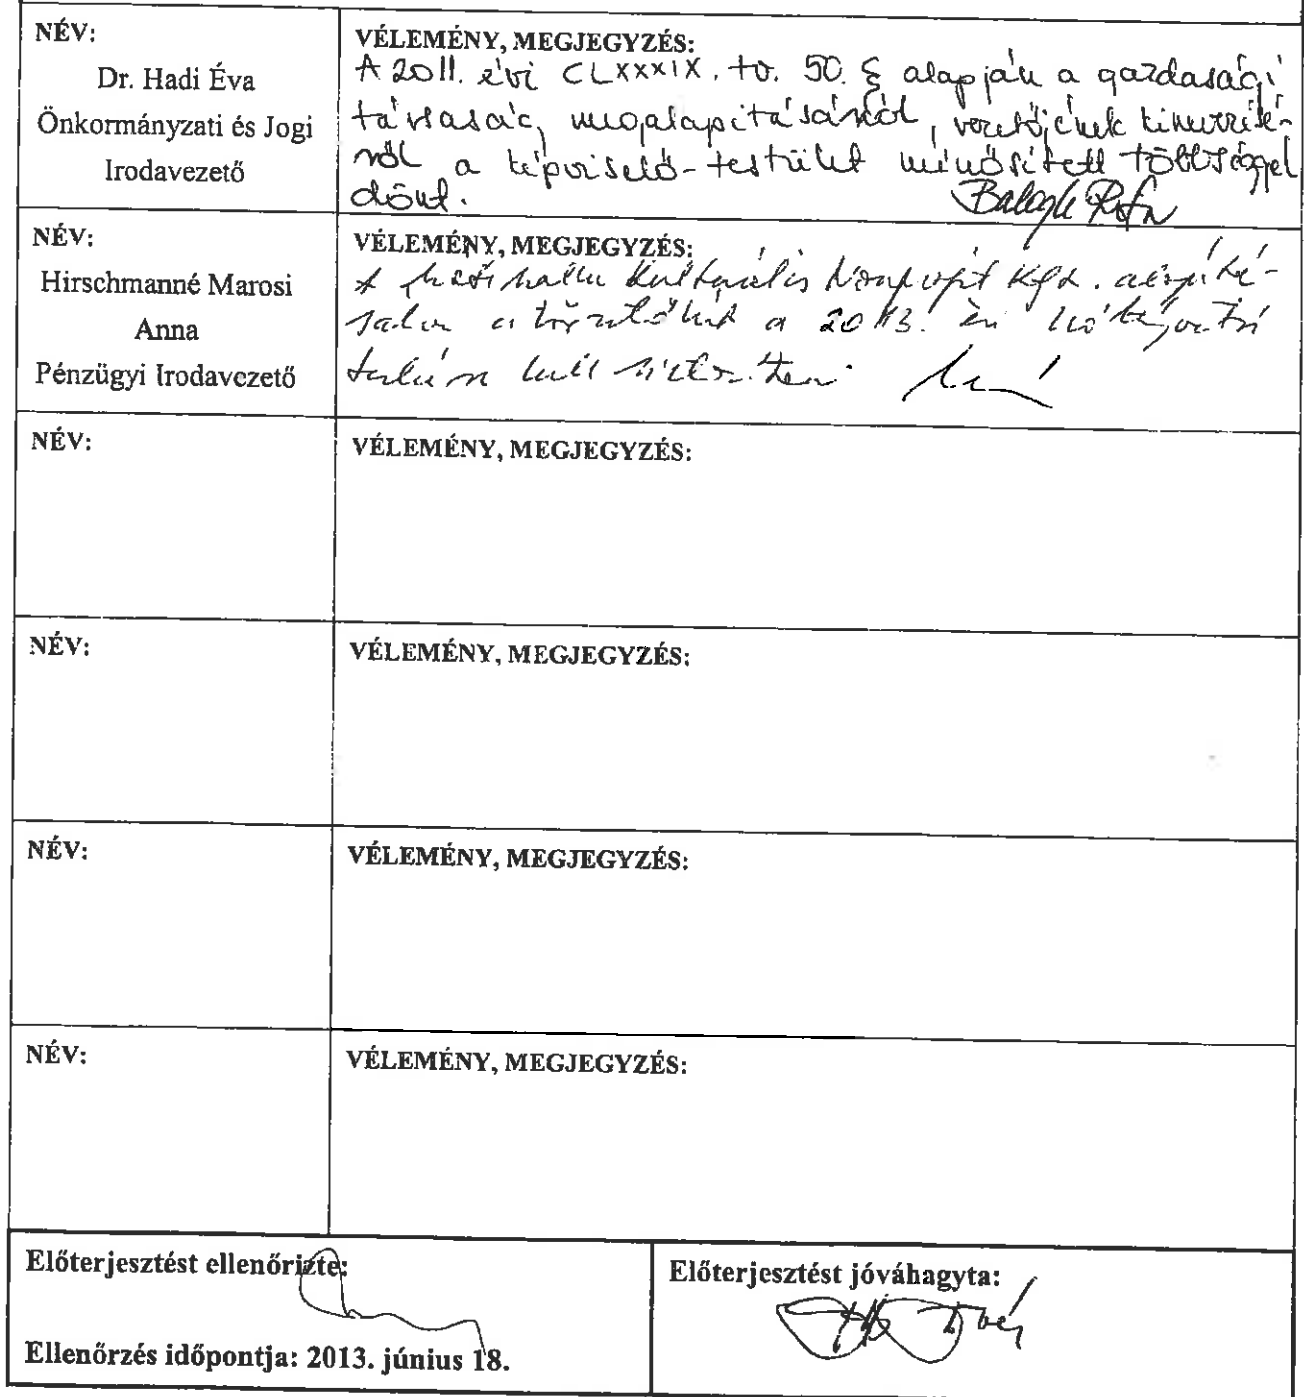 NÉV:
Dr. Hadi Éva
Önkormányzati és Jogi
Irodavezető
VÉLEMÉNY, MEGJEGYZÉS:
A 2011. évi CLXXXIX. tv. 50. § alapján a gazdasági
társaság megalapításáról, vezetőjének kinevezésé-
ről a képviselő-testület minősített többséggel
dönt.
Balogh
NÉV:
Hirschmanné Marosi
Anna
Pénzügyi Irodavezető
VÉLEMÉNY, MEGJEGYZÉS:
A Kulturális Nonprofit Kft. alapítá-
a 2013. évi
kell
NÉV:
VÉLEMÉNY, MEGJEGYZÉS:
NÉV:
VÉLEMÉNY, MEGJEGYZÉS:
NÉV:
VÉLEMÉNY, MEGJEGYZÉS:
NÉV:
VÉLEMÉNY, MEGJEGYZÉS:
Előterjesztést ellenőrizte:
Ellenőrzés időpontja: 2013. június 18.
Előterjesztést jóváhagyta: